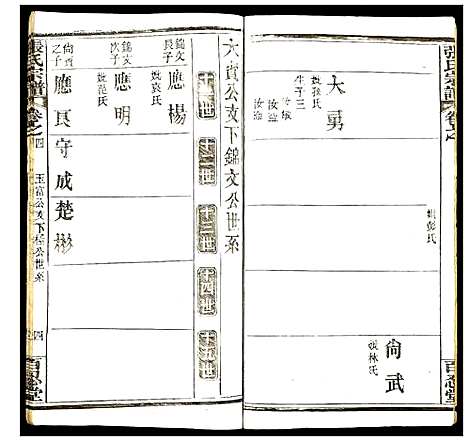 張氏宗譜
卷之
百忍堂
大勇
娶孫氏
生子三
汝
汝
汝滋
娶彭氏
尚武
娶林氏
六賁公支下錦文公世系
十一世
十二世
十三世
十四世
十五世
錦文長子
應楊
娶袁氏
錦文次子
應明
娶范氏
尚賁之子
應良
守成
楚彬
張氏宗譜
卷之四
玉富公支下
公世系
四
百忍堂